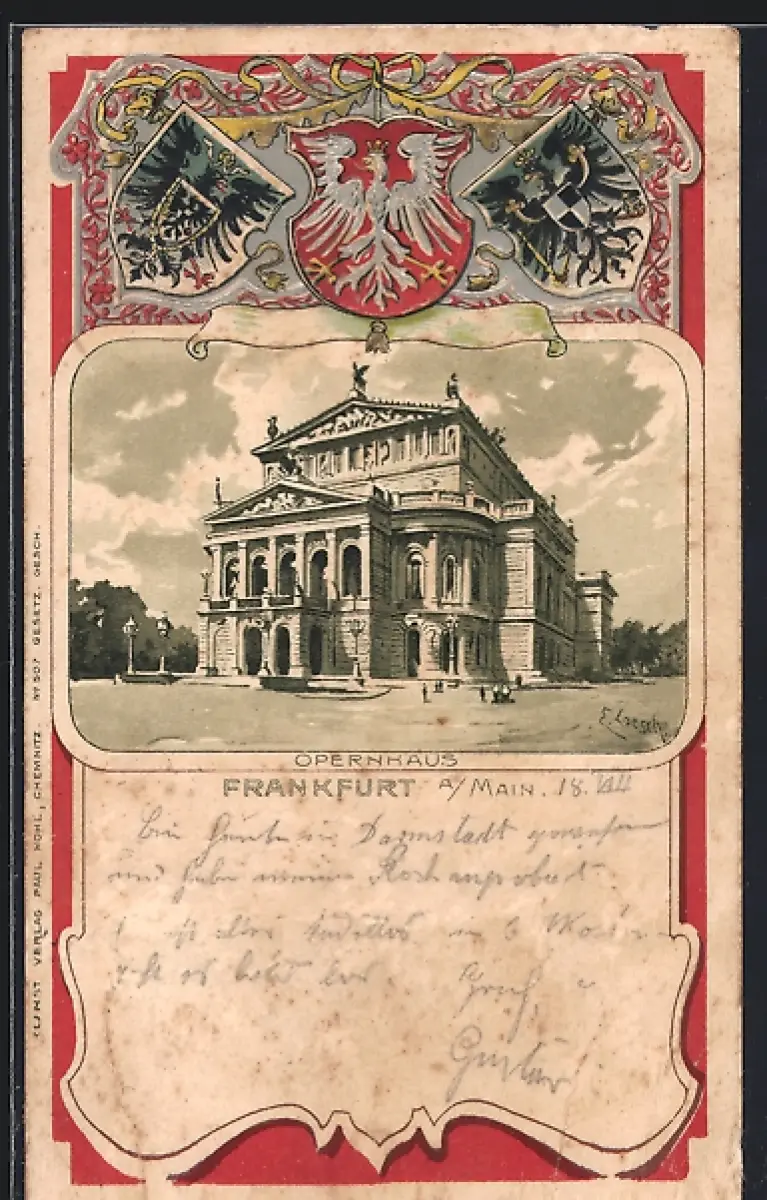 E. Loesch
OPERNHAUS
FRANKFURT A/ MAIN. 18. VII
Bin heute in Darmstadt gewesen
und habe meinen Rock anprobiert
ist alles tadellos in 6 Wochen
geht es bald los. Gruß
Gustav
KUNST VERLAG PAUL KOHL, CHEMNITZ. No 507 GESETZ. GESCH.